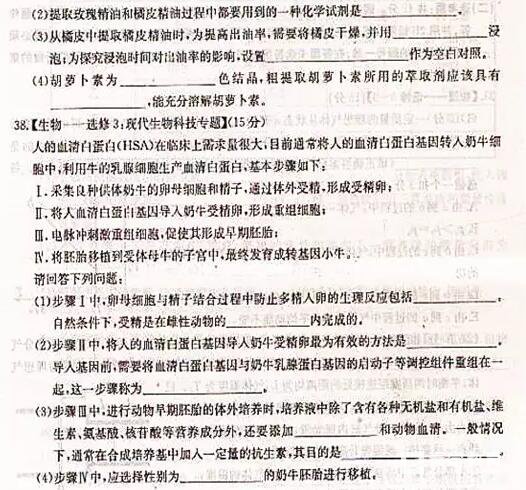 (2)提取玫瑰精油和橘皮精油过程中都要用到的一种化学试剂是____________。
(3)从橘皮中提取橘皮精油时,为提高出油率,需要将橘皮干燥,并用____________浸
泡,为探究浸泡时间对出油率的影响,设置____________作为空白对照。
(4)胡萝卜素为____________色结晶,粗提取胡萝卜素所用的萃取剂应该具有
____________,能充分溶解胡萝卜素。
38.【生物——选修3:现代生物科技专题】(15分)
人的血清白蛋白(HSA)在临床上需求量很大,目前通常将人的血清白蛋白基因转入奶牛细
胞中,利用牛的乳腺细胞生产血清白蛋白,基本步骤如下:
Ⅰ.采集良种供体奶牛的卵母细胞和精子,通过体外受精,形成受精卵;
Ⅱ.将人血清白蛋白基因导入奶牛受精卵,形成重组细胞;
Ⅲ.电脉冲刺激重组细胞,促使其形成早期胚胎;
Ⅳ.将胚胎移植到受体母牛的子宫中,最终发育成转基因小牛。
请回答下列问题:
(1)步骤Ⅰ中,卵母细胞与精子结合过程中防止多精入卵的生理反应包括____________。
自然条件下,受精是在雌性动物的____________内完成的。
(2)步骤Ⅱ中,将人的血清白蛋白基因导入奶牛受精卵最为有效的方法是____________。
导入基因前,需要将血清白蛋白基因与奶牛乳腺蛋白基因的启动子等调控组件重组在一
起,这一步骤称为____________。
(3)步骤Ⅲ中,进行动物早期胚胎的体外培养时,培养液中除了含有各种无机盐和有机盐、维
生素、氨基酸、核苷酸等营养成分外,还要添加____________和动物血清。一般情况
下,通常在合成培养基中加入一定量的抗生素,其目的是____________。
(4)步骤Ⅳ中,应选择性别为____________的奶牛胚胎进行移植。